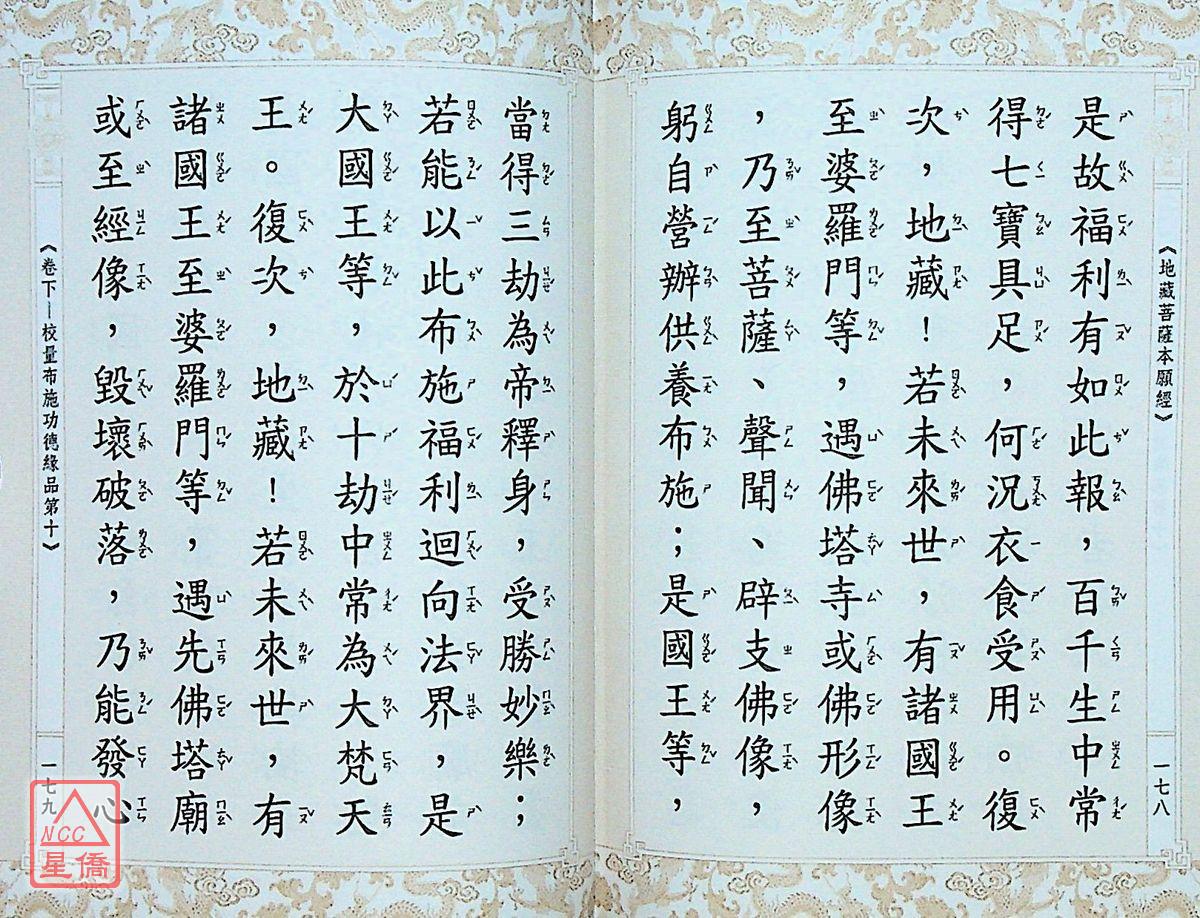 《地藏菩薩本願經》
一七八
是故福利有如此報，百千生中常
得七寶具足，何況衣食受用。復
次，地藏！若未來世，有諸國王
至婆羅門等，遇佛塔寺或佛形像
，乃至菩薩、聲聞、辟支佛像，
躬自營辦供養布施；是國王等，
當得三劫為帝釋身，受勝妙樂；
若能以此布施福利迴向法界，是
大國王等，於十劫中常為大梵天
王。復次，地藏！若未來世，有
諸國王至婆羅門等，遇先佛塔廟
或至經像，毀壞破落，乃能發心
《卷下—校量布施功德緣品第十》
一七九
NCC
星僑